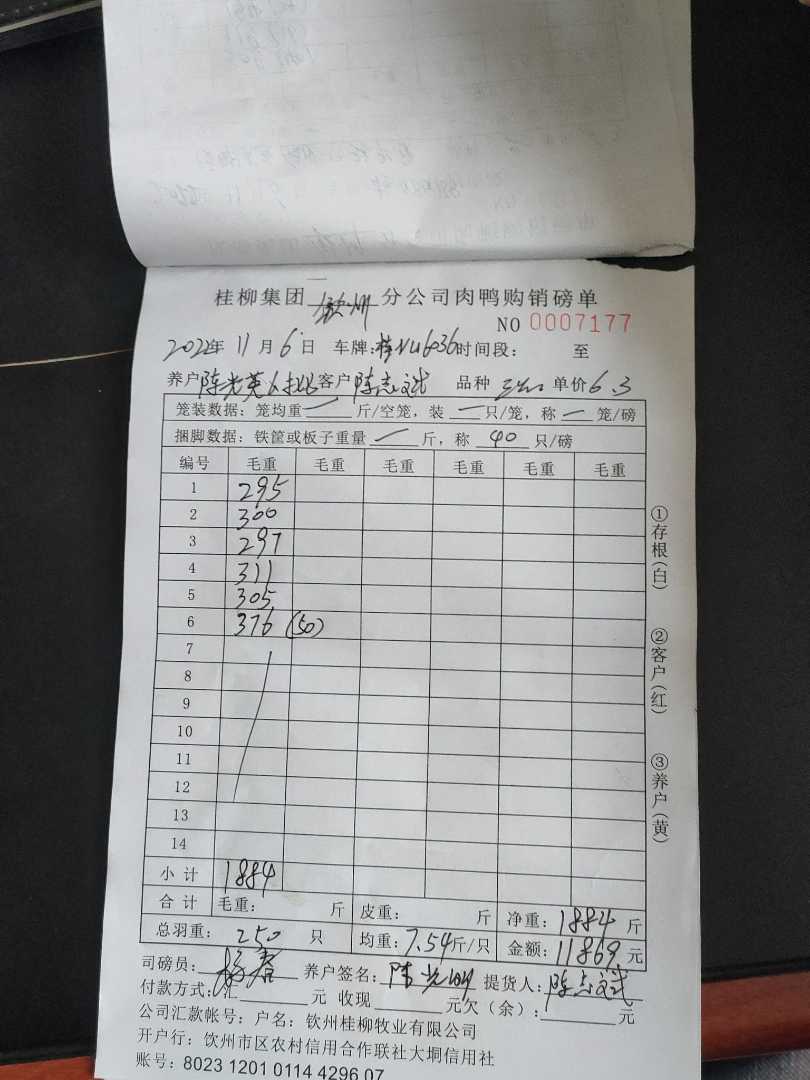 桂柳集团 钦州 分公司肉鸭购销磅单
NO 0007177
2022年 11月 6日 车牌:桂NU6036 时间段: 至
养户 陈光英 客户 陈志斌 品种 单价 6.3
笼装数据: 笼均重 — 斤/空笼, 装 — 只/笼, 称 — 笼/磅
捆脚数据: 铁筐或板子重量 — 斤, 称 40 只/磅
编号 毛重 毛重 毛重 毛重 毛重 毛重
1 295
2 300
3 297
4 311
5 305
6 376 (50)
7
8
9
10
11
12
13
14
小计 1884
合计 毛重: 斤 皮重: 斤 净重: 1884 斤
总羽重: 250 只 均重: 7.54 斤/只 金额: 11869 元
司磅员: 杨春 养户签名: 陈光明 提货人: 陈志斌
付款方式: 汇 元 收现 元欠(余): 元
公司汇款帐号: 户名: 钦州桂柳牧业有限公司
开户行: 钦州市区农村信用合作联社大垌信用社
账号: 8023 1201 0114 4296 07
①存根(白)
②客户(红)
③养户(黄)